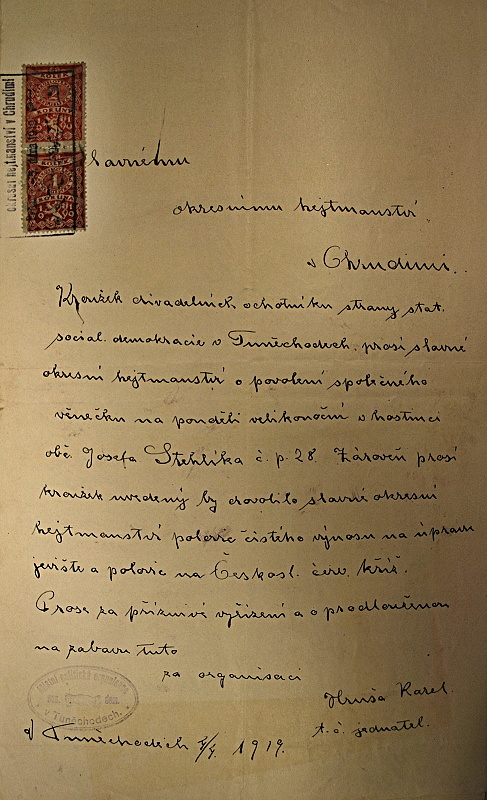 okresní hejtmanství v Chrudimi
KOLEK
KORUNA
KOLEK
KORUNA
Slavnému
okresnímu hejtmanství
v Chrudimi.
Kroužek divadelních ochotníku strany stat.
social. demokracie v Tuněchodech, prosí slavné
okresní hejtmanství o povolení společného
věnečku na pondělí velikonoční v hostinci
obč. Josefa Stehlíka č. p. 28. Zároveň prosí
kroužek uvedený by dovolilo slavné okresní
hejtmanství polovic čistého výnosu na úpravu
jeviště a polovic na Českosl. červ. kříž.
Prose za příznivé vyřízení a o prodlouženou
na zábavu tuto
za organisaci
Hruša Karel.
t. č. jednatel.
Místní politická organisace
v Tuněchodech.
V Tuněchodech 1919.